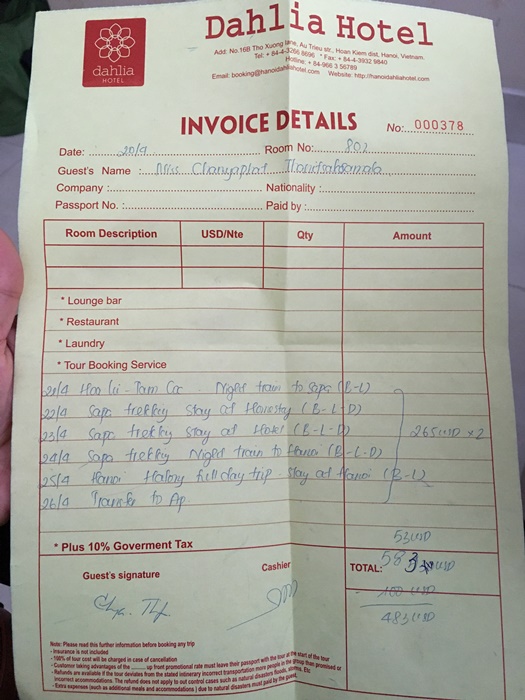 dahlia
HOTEL
Dahlia Hotel
Add: No.16B Tho Xuong lane, Au Trieu str., Hoan Kiem dist, Hanoi, Vietnam
Tel: +84-4-3266 8696 * Fax: + 84-4-3932 9840
Hotline: + 84-966 3 56789
Email: booking@hanoidahliahotel.com Website: http://hanoidahliahotel.com
INVOICE DETAILS
No: 000378
Date: 20/9 Room No: 802
Guest's Name : Miss
Company : Nationality :
Passport No. : Paid by :
Room Description USD/Nte Qty Amount
* Lounge bar
* Restaurant
* Laundry
* Tour Booking Service
21/9 Hoa Lu - Tam Coc - Night train to Sapa (B-L)
22/9 Sapa trekking stay at Homestay (B-L-D)
23/9 Sapa trekking stay at Hotel (B-L-D)
265 USD x 2
24/9 Sapa trekking Night train to Hanoi (B-L-D)
25/9 Hanoi Halong full day trip - stay at Hanoi (B-L)
26/9 Transfer to Ap
53 USD
* Plus 10% Goverment Tax
Guest's signature Cashier TOTAL: 583 USD
- 100 USD
483 USD
Note: Please read this further information before booking any trip
- Insurance is not included
- 100% of tour cost will be charged in case of cancellation
- Customer taking advantages of the ........ up front promotional rate must leave their passport with the tour at the start of the tour
- Refunds are available if the tour deviates from the stated intinerary incorrect transportation more people in the group than promised or
incorrect accommodations. The refund does not apply to out control cases such as natural disasters floods, storms, Etc.
- Extra expenses (such as additional meals and accommodations ) due to natural disasters must paid by the guest.